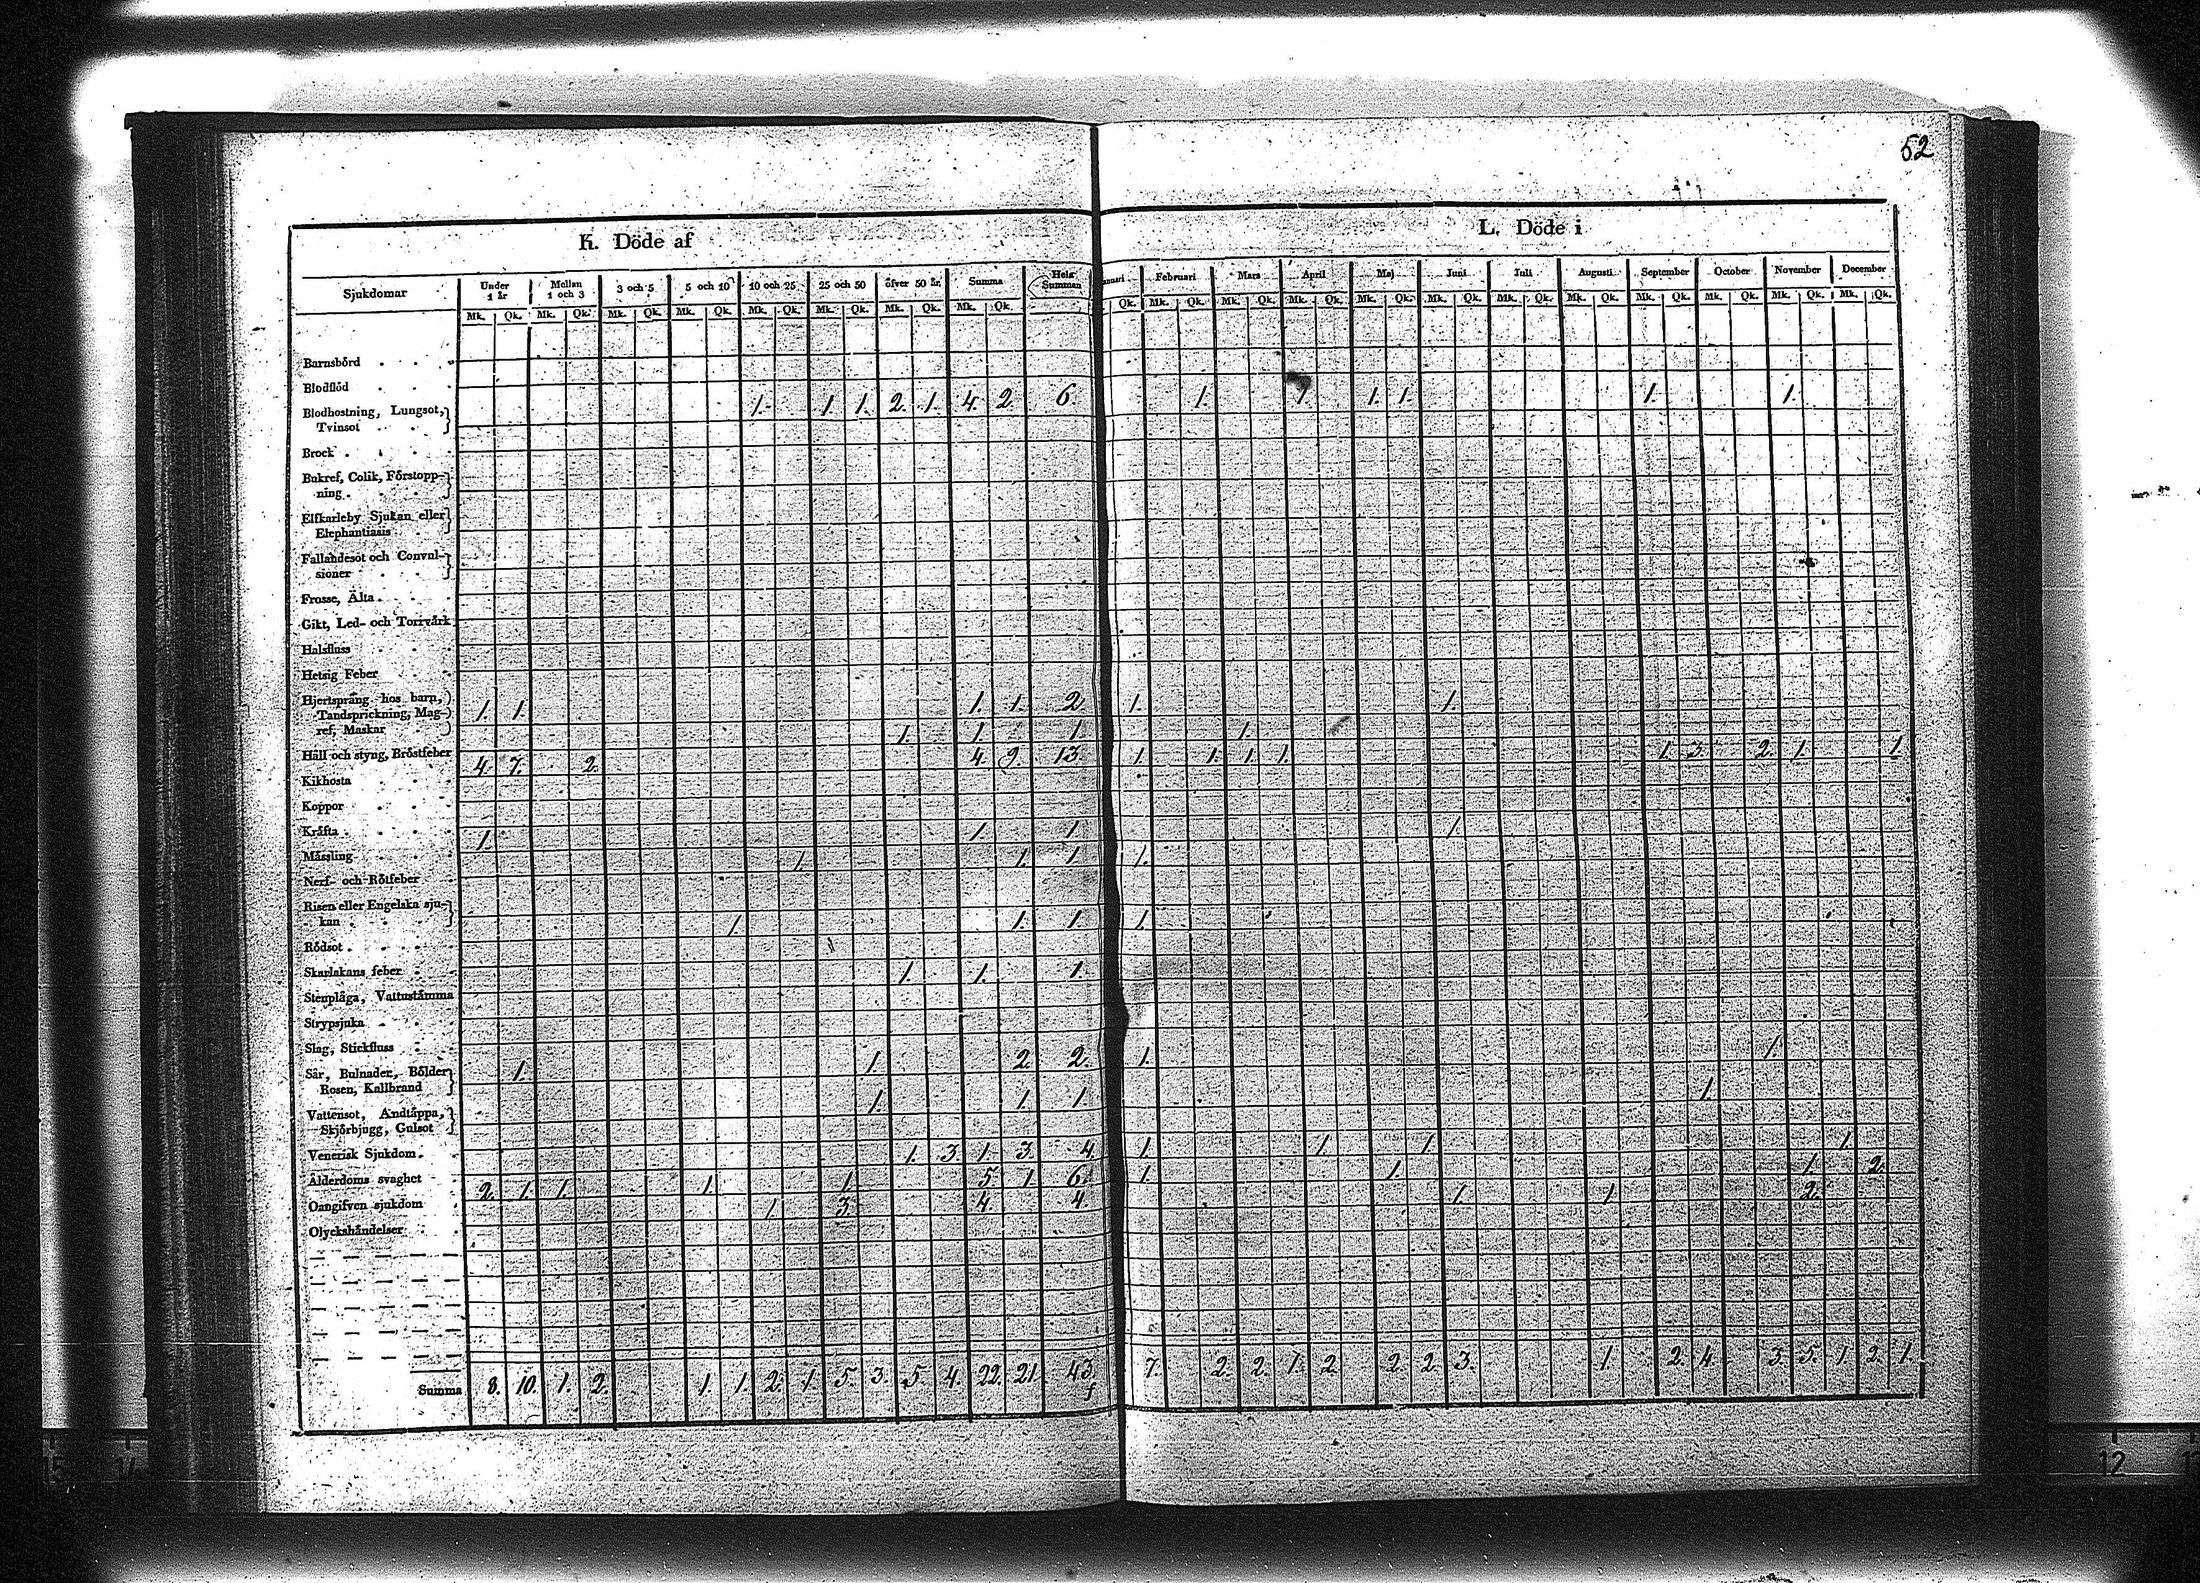 52
K. Döde af
L. Döde i
Sjukdomar Under 1 år Mellan 1 och 3 3 och 5 5 och 10 10 och 25 25 och 50 öfver 50 år Summa Hela Summan
Februari Mars April Maj Juni Juli Augusti September October November December
Mk. Qk. Mk. Qk. Mk. Qk. Mk. Qk. Mk. Qk. Mk. Qk. Mk. Qk. Mk. Qk.
Qk. Mk. Qk. Mk. Qk. Mk. Qk. Mk. Qk. Mk. Qk. Mk. Qk. Mk. Qk. Mk. Qk. Mk. Qk. Mk. Qk. Mk. Qk.
Barnsbörd
Blodflöd
1. 1. 1. 2. 1. 4. 2. 6. 1. 1. 1. 1. 1. 1.
Blodhostning, Lungsot,
Tvinsot
Brock
Bukref, Colik, Förstopp-
ning
Elfkarleby Sjukan eller
Elephantiasis
Fallandesot och Convul-
sioner
Frosse, Älta
Gikt, Led- och Torrvärk
Halsfluss
Hetsig Feber
Hjertsprång hos barn,
1. 1. 1. 1. 2. 1. 1.
Tandsprickning, Mag-
ref, Maskar
1. 1. 1. 1.
Håll och styng, Bröstfeber
4. 7. 2. 4. 9. 13. 1. 1. 1. 1. 1. 3. 2. 1. 1.
Kikhosta
Koppor
Kräfta
1. 1. 1. 1.
Mässling
1. 1. 1. 1.
Nerf- och Rötfeber
Risen eller Engelska sju-
kan
1. 1. 1. 1.
Rödsot
Skarlakans feber
1. 1. 1.
Stenplåga, Vattustämma
Strypsjuka
Slag, Stickfluss
1. 1. 2. 2. 1. 1.
Sår, Bulnader, Bölder
Rosen, Kallbrand
1. 1. 1. 1.
Vattensot, Andtäppa,
Skjörbjugg, Gulsot
Venerisk Sjukdom
1. 3. 1. 3. 4. 1. 1. 1. 1.
Ålderdoms svaghet
2. 1. 1. 1. 1. 5. 1. 6. 1. 1. 1. 2.
Oangifven sjukdom
1. 3. 4. 4. 1. 1. 2.
Olyckshändelser
Summa 8. 10. 1. 2. 1. 1. 2. 1. 5. 3. 5. 4. 22. 21. 43. 7. 2. 2. 1. 2. 2. 2. 3. 1. 2. 4. 3. 5. 1. 2. 1.
12